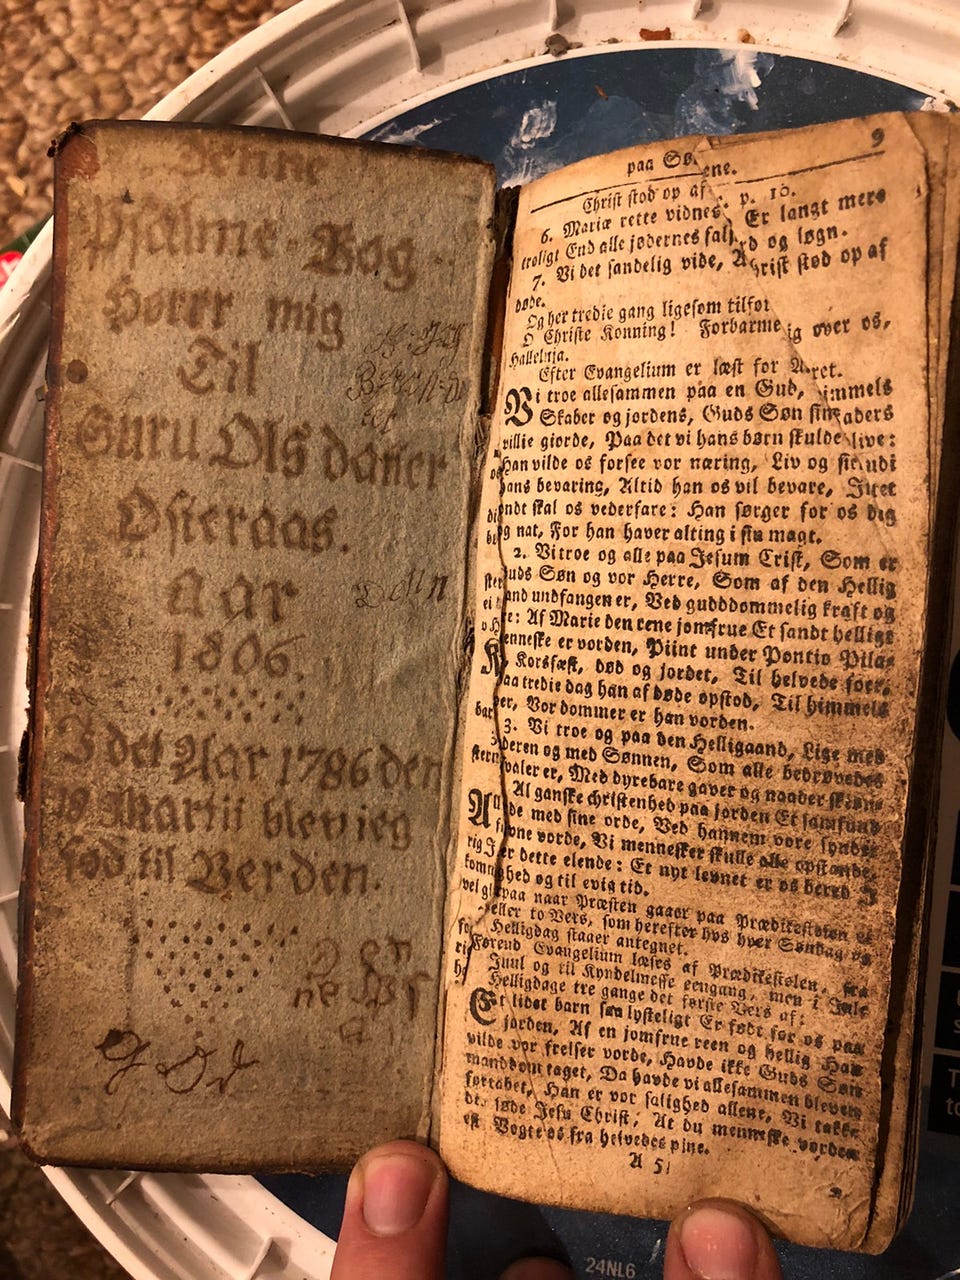 Denne
Psalme Bog
Hörer mig
Til
Guri Olsdaaner
Østeraas.
Aar
1806
I det Aar 1786 de
18 Martii blev ieg
Fød til Verden.
9
paa
Christ stod op af p. 10.
6. Mariæ rette vidnes Er langt mere
troligt End alle jødernes og løgn.
7. Vi det sandelig vide, stod op af
døde.
Og her tredie gang ligesom tilför
O Christe Konning! Forbarme over os,
Halleluja.
Efter Evangelium er læst for
Vi troe allesammen paa en Gud,
Skaber og jordens, Guds Søn
villie giorde, Paa det vi hans børn skulde live:
Han vilde os forsee vor næring, Liv og
hans bevaring, Altid han os vil bevare,
ondt skal os vederfare: Han sørger for os dag
og nat, For han haver alting i sin magt.
2. Vi troe og alle paa Jesum Crist, Som er
Guds Søn og vor Herre, Som af den Hellig
Aand undfangen er, Ved guddommelig kraft og
Af Marie den rene jomfrue Et sandt hellige
menneske er vorden, Piint under Pontio Pila-
Korsfæst, død og jordet, Til helvede foer,
Paa tredie dag han af døde opstod, Til himmels
Vor dommer er han vorden.
3. Vi troe og paa den Helligaand, Lige med
Faderen og med Sønnen, Som alle bedrøvedes
er, Med dyrebare gaver og naader
Al ganske christenhed paa jorden Et samfund
med sine orde, Ved hannem vore synder
vorde, Vi mennesker skulle alle opstande,
dette elende: Et nyt levnet er os bered I
og til evig tid.
naar Præsten gaaer paa Prædikestolen
eller to Vers, som herefter hos hver Søndag og
Helligdag staaer antegnet.
Førend Evangelium læses af Prædikestolen, fra
Juul og til Kyndelmesse eengang, men i Jule
Helligdage tre gange det første Vers af:
Et lidet barn saa lysteligt Er født for os paa
jorden, Af en jomfrue reen og hellig Han
vilde vor frelser vorde, Havde ikke Guds Søn
manddom taget, Da havde vi allesammen bleven
fortabet, Han er vor salighed allene, Vi takke
dig søde Jesu Christ, At du menneske vorden
est Vogte os fra helvedes pine.
A 5
24NL6